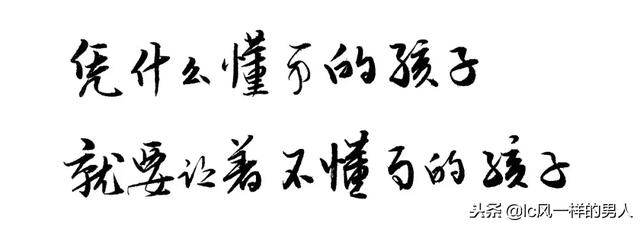 凭什么懂事的孩子
就要让着不懂事的孩子
头条 @lc风一样的男人